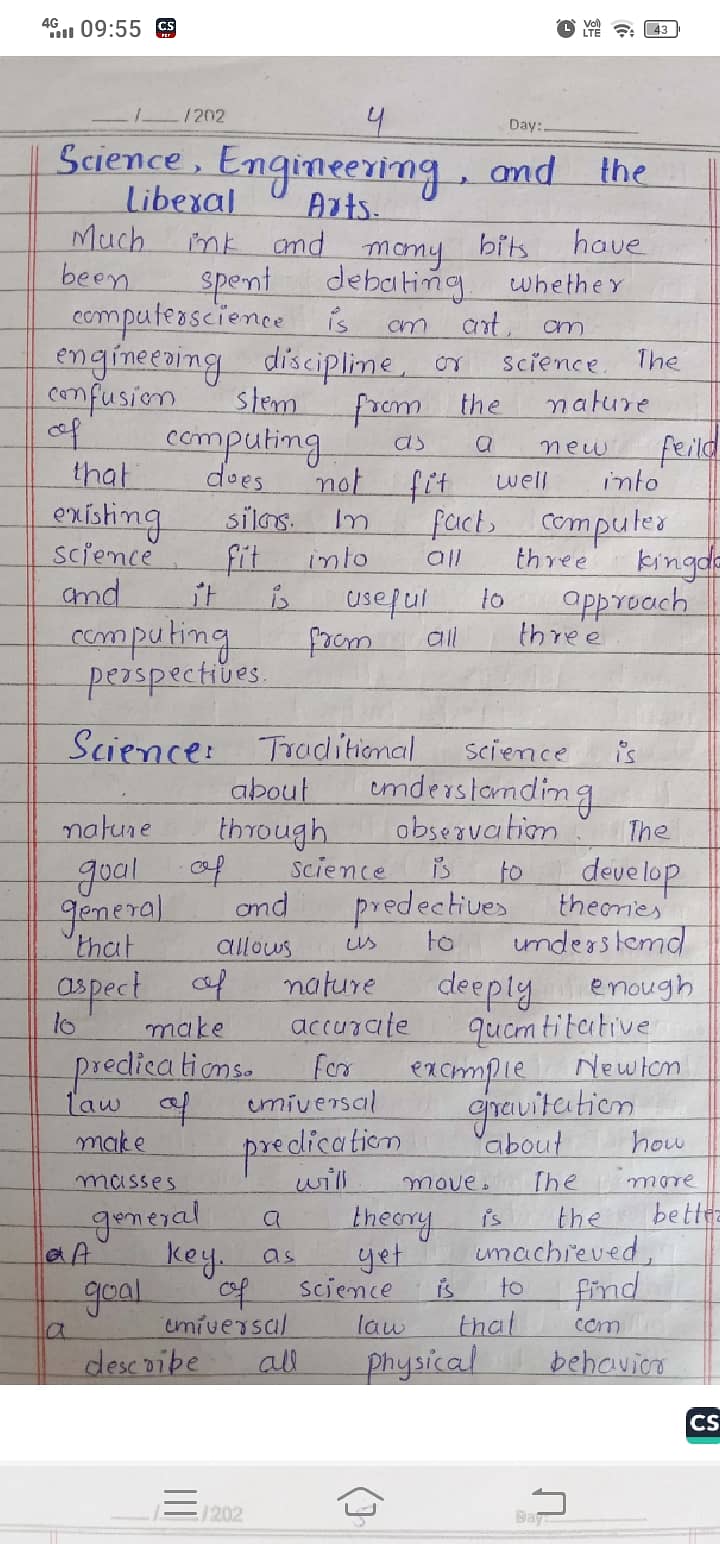 4G 09:55 CS PDF Vo) LTE 43
__/__/202 4 Day:
Science, Engineering, and the
Liberal Arts.
Much ink and many bits have
been spent debating whether
computerscience is an art, an
engineering discipline, or science. The
confusion stem from the nature
of computing as a new feild
that does not fit well into
existing silos. In fact, computer
science fit into all three kingdo
and it is useful to approach
computing from all three
perspectives.
Science: Traditional science is
about understanding
nature through observation. The
goal of science is to develop
general and predectives theories
that allows us to understand
aspect of nature deeply enough
to make accurate quantitative
predications. For example Newton
law of universal gravitation
make predication about how
masses will move. The more
general a theory is the better
A key. as yet unachieved,
goal of science is to find
a universal law that can
describe all physical behavior
CS
__/__/202 5 Day: